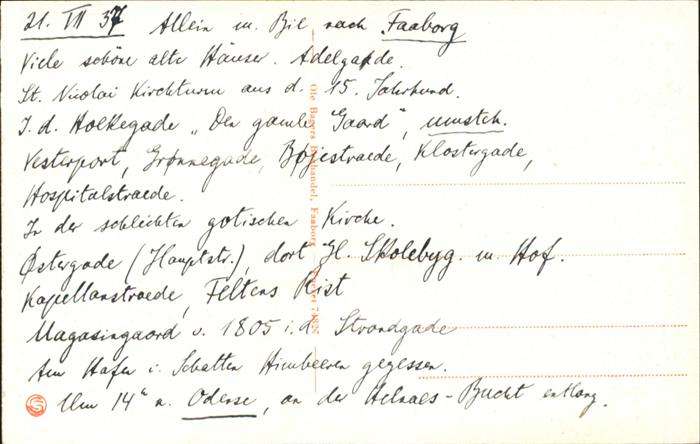 21. VII 37 Allein m. Bil nach Faaborg
Viele schöne alte Häuser. Adelgade.
St. Nicolai Kirchturm aus d. 15. Jahrhund.
I. d. Holkegade „Den gamle Gaard",
Vesterport, Grønnegade, Bøjestraede, Klostergade,
Hospitalstraede.
In der schlichten gotischen Kirche.
Østergade (Hauptstr.), dort Gl. Skolebyg. m Hof.
Kapellanstraede, Feltens Rist
Magasingaard v. 1805 i. d. Strandgade
Am Hafen i. Schatten Himbeeren gegessen.
Um 14 n. Odense, an der Helnaes-Bucht entlang.
Ole Bagers Boghandel, Faaborg